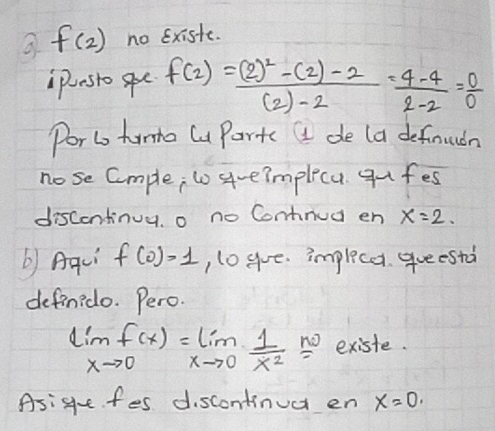 a) f(2) no existe.
¡Puesto que f(2) = (2)² - (2) - 2 / (2) - 2 = 4-4 / 2-2 = 0/0
Por lo tanto la Parte ① de la definición
no se cumple; lo que implica que f es
discontinua. o no Continua en x=2.
b) Aquí f(0)=1, lo que implica que está
definido. Pero.
lím f(x) = lím 1/x² no existe.
x→0 x→0
Asi que f es discontinua en x=0.